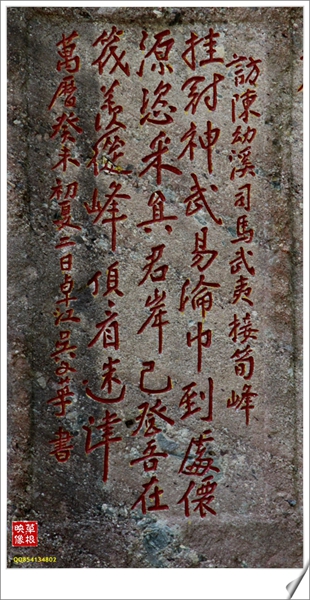 訪陳幼溪司馬武夷接筍峰
挂冠神武易綸巾到處僊
源恣采真君岸已登吾在
筏羨從峰頂看迷津
萬曆癸未初夏二日連江吳文華書
草根映像
QQ854134802